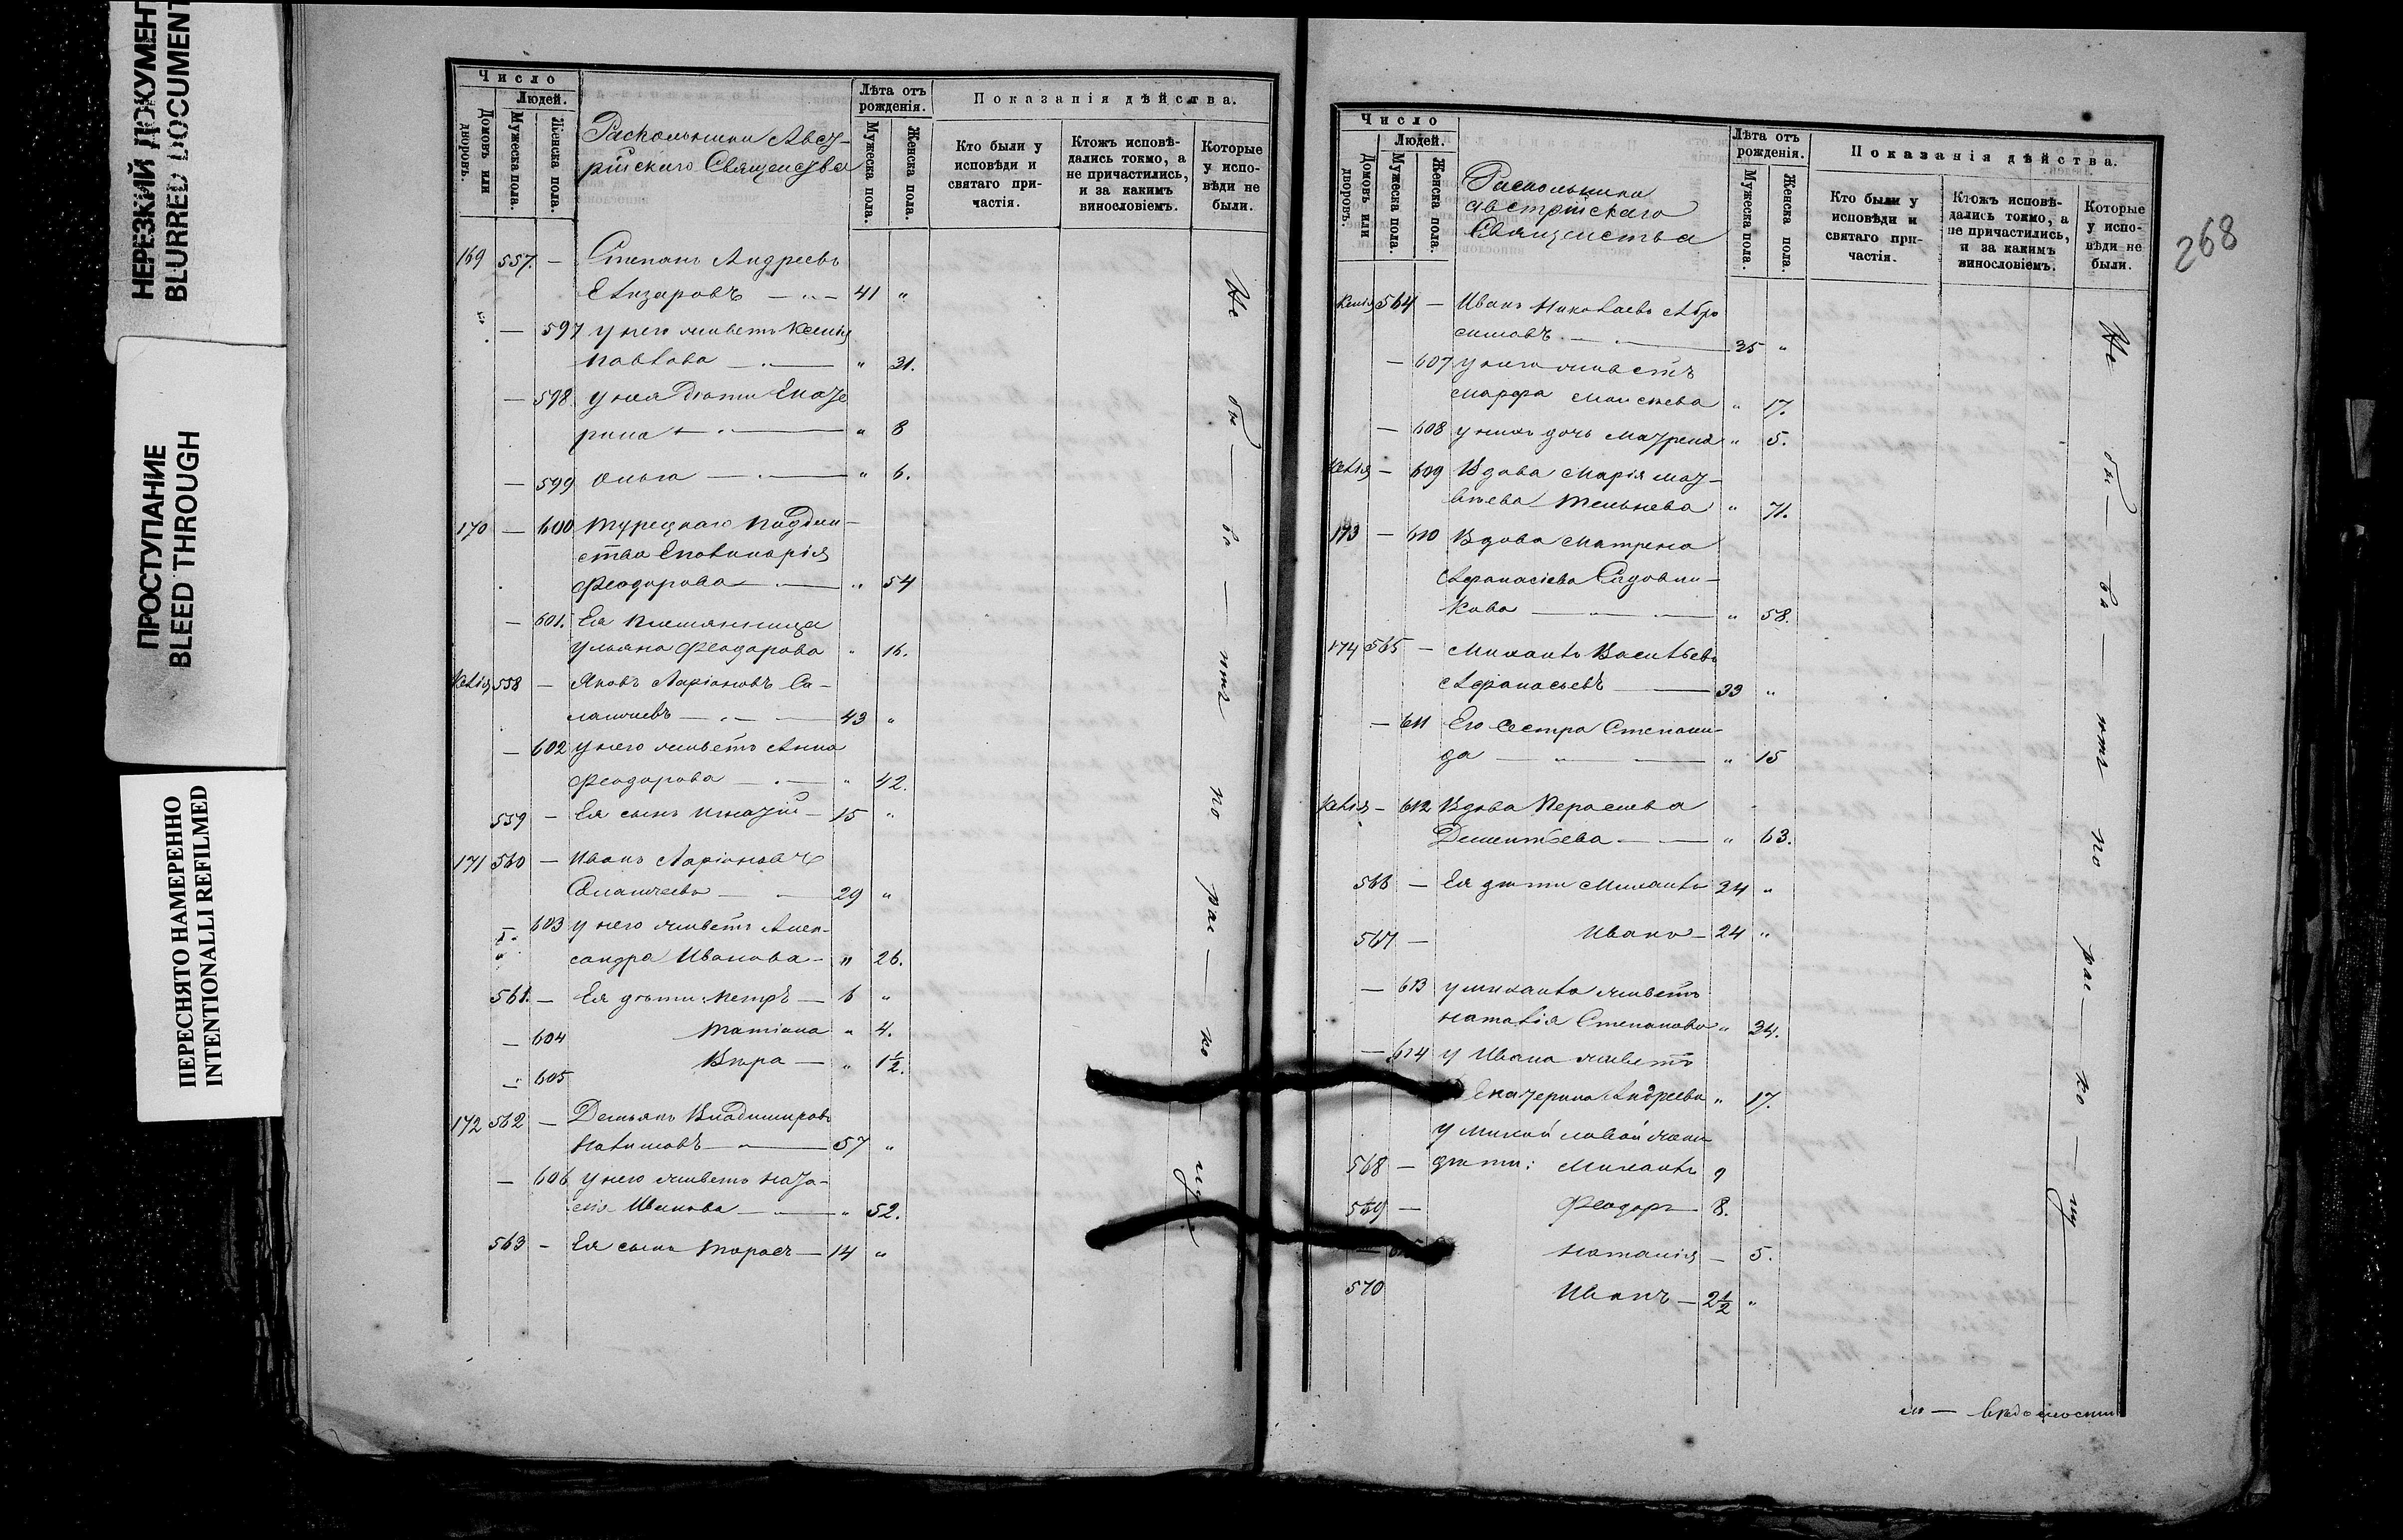 НЕРЕЗКИЙ ДОКУМЕНТ
BLURRED DOCUMENT
ПРОСТУПАНИЕ
BLEED THROUGH
ПЕРЕСНЯТО НАМЕРЕННО
INTENTIONALLI REFILMED
Число
Людей.
Домовъ или дворовъ.
Мужеска пола.
Женска пола.
Раскольники Авст-
рійскаго Священства
Лѣта отъ рожденія.
Мужеска пола.
Женска пола.
Показанія дѣйства.
Кто были у исповѣди и святаго при-частія.
Ктожъ исповѣ-дались токмо, а не причастились, и за какимъ винословіемъ.
Которые у испо-вѣди не были.
169 557. — Степанъ Андреевъ
Елизаровъ — 41 "
— 597 у него живетъ Ксенія
Павлова — " 31.
— 598 у нея дѣти Екате
рина — " 8
— 599 Ольга — " 6.
170 — 600 Турецкаго поддан-
ства Еполинарія
Феодорова — " 54
— 601. Ея племянница
Ульяна Феодорова " 16.
Келія 558 — Яковъ Ларіоновъ Са-
— 43 "
— 602 у него живетъ Анна
Феодорова — " 42.
559 — Ея сынъ Игнатій — 15 "
171 560 — Иванъ Ларіоновъ
— 29 "
603 у него живетъ Алек-
сандра Иванова — " 26.
561. — Ея дѣти: Петръ — 6 "
— 604 Татіана " 4.
— 605 Вѣра — " 1½.
172 562 — Демьянъ Владимировъ
Налимовъ — 57 "
— 606 у него живетъ Ната-
лія Иванова — " 52.
563 — Ея сынъ Тарасъ — 14 "
Не бы — ли — по рас — ко —
Число
Людей.
Домовъ или дворовъ.
Мужеска пола.
Женска пола.
Раскольники
австрійскаго
Священства
Лѣта отъ рожденія.
Мужеска пола.
Женска пола.
Показанія дѣйства.
Кто были у исповѣди и святаго при-частія.
Ктожъ исповѣ-дались токмо, а не причастились, и за какимъ винословіемъ.
Которые у испо-вѣди не были.
268
Келія 564 — Иванъ Николаевъ Абро
симовъ — 35 "
— 607 у него живетъ
Марфа Моисеева " 17.
— 608 у нихъ дочь Матрена " 5.
Келія — 609 Вдова Марія Мат-
вѣева " 71.
173 — 610 Вдова Матрена
Афанасіева Садовни-
кова — " 58.
174 565 — Михаилъ Васильевъ
Афанасьевъ — 33 "
— 611 Его сестра Степани-
да — " 15
Келія — 612 Вдова Параскева
Дементьева — " 63.
566 — Ея дѣти Михаилъ 34 "
567 — Иванъ — 24 "
— 613 у Михаила живетъ
Наталія Степанова " 34.
— 614 у Ивана живетъ
Екатерина Андреева " 17.
568 — дѣти: Михаилъ 9
569 — Феодоръ 8.
Наталія — 5.
570 Иванъ — 2½ "
Не бы — ли — по рас — ко —